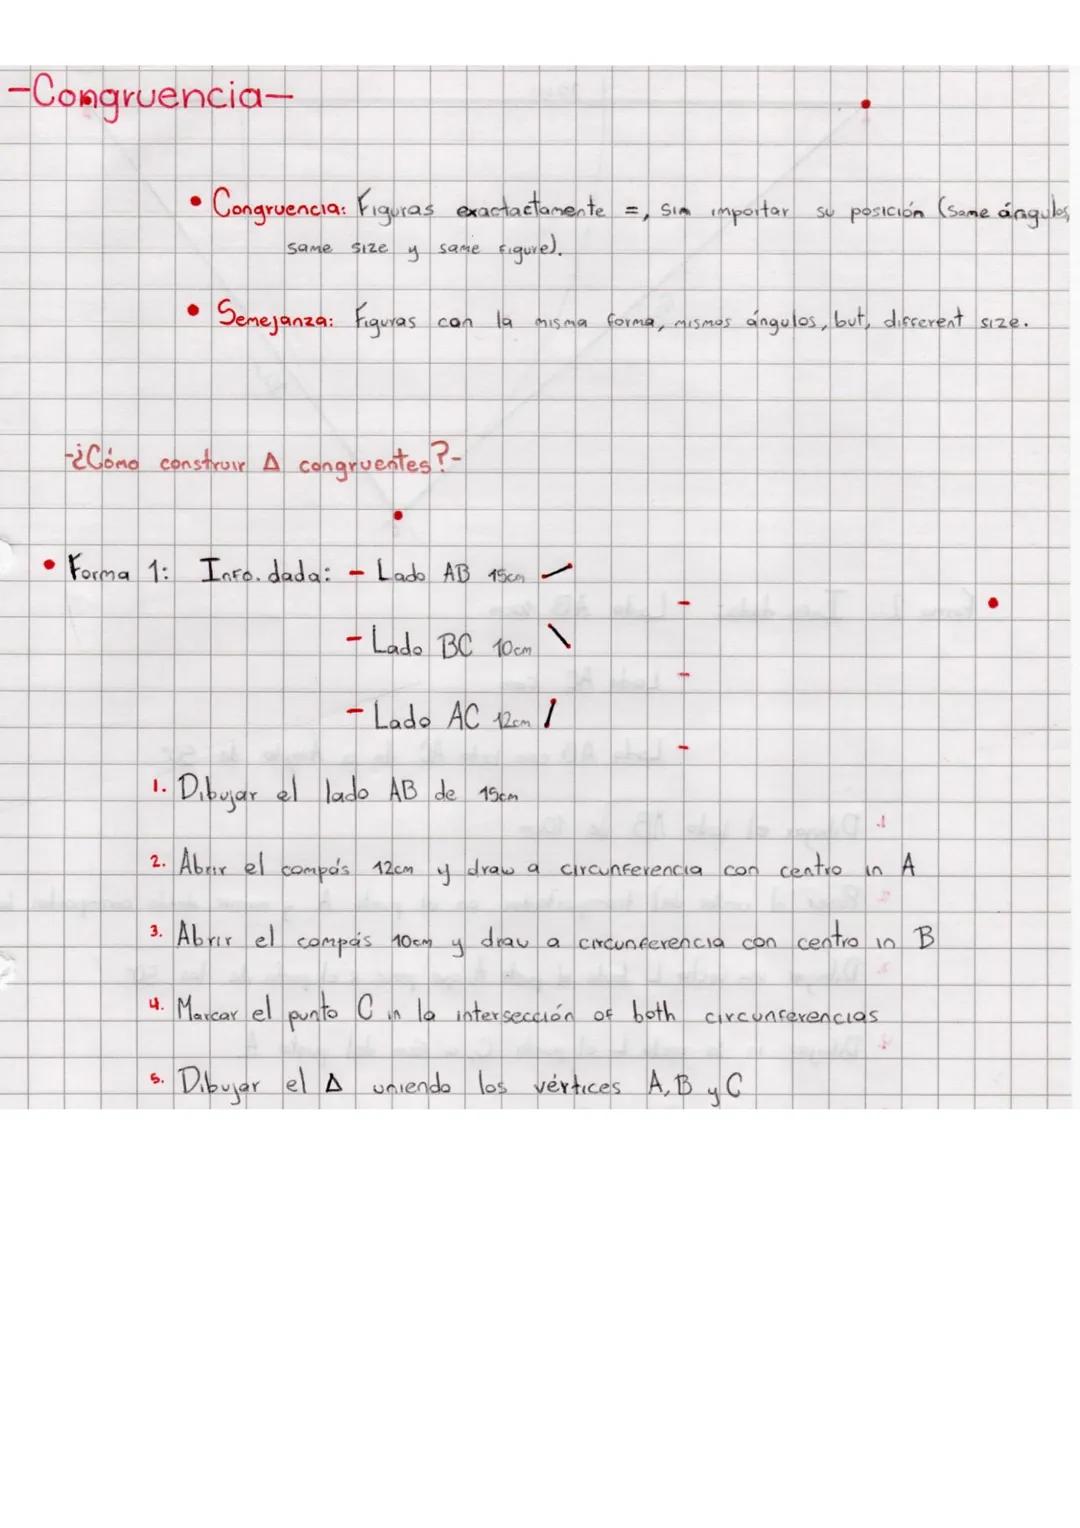 -Congruencia-
• Congruencia: Figuras exactactamente =, sin importar su posición (Same ángulos,
same size y same figure).
• Semejanza: Figuras con la misma forma, mismos ángulos, but, different size.
-¿Cómo construir Δ congruentes?-
• Forma 1: Info. dada: - Lado AB 15cm
- Lado BC 10cm
- Lado AC 12cm
1. Dibujar el lado AB de 15cm
2. Abrir el compás 12cm y draw a circunferencia con centro in A
3. Abrir el compás 10cm y draw a circunferencia con centro in B
4. Marcar el punto C in la intersección of both circunferencias
5. Dibujar el Δ uniendo los vértices A, B y C